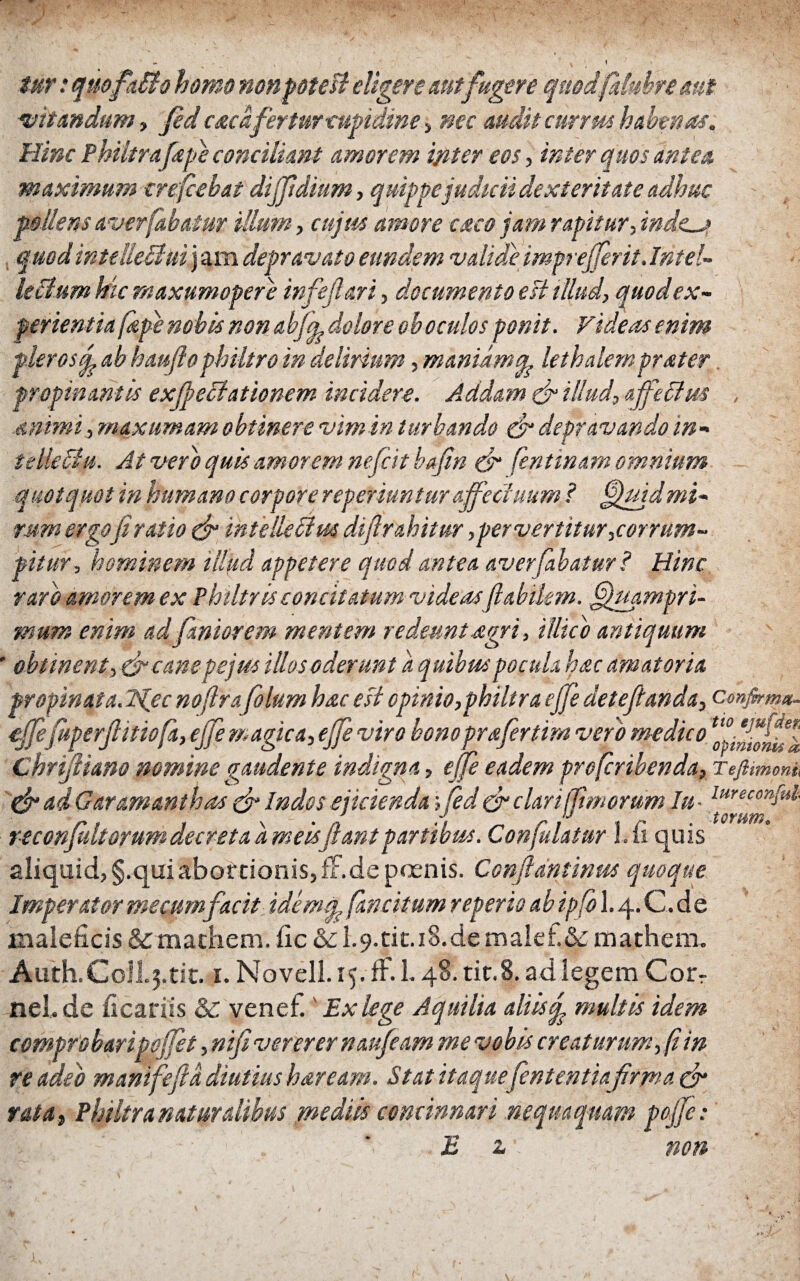 tur: quo facto homo non poteſt eligere aut fugere quod ſalubre aut
vitandum, ſed cæcâ fertur cupidine, nec audit currus habenas.
Hinc Philtra ſæpè conciliant amorem inter eos, inter quos antea
maximum creſcebat diſſidium, quippe judicii dexteritate adhuc
pollens averſabatur illum, cujus amore cæco jam rapitur, inde
quod intellectui jam depravato eundem validè impreſſerit. Intel-
lectum hîc maxumoperè infeſtari, documento eſt illud, quod ex-
perientia ſæpè nobis non abſq; dolore ob oculos ponit. Videas enim
pleroſq; ab hauſto philtro in delirium, maniamq; lethalem præter
propinantis exſpectationem incidere. Addam & illud, affectus
animi, maxumam obtinere vim in turbando & depravando in-
tellectu. At verò quis amorem neſcit baſin & ſentinam omnium
quotquot in humano corpore reperiuntur affectuum? Quid mi-
rum ergo ſi ratio & intellectus diſtrahitur, pervertitur, corrum-
pitur, hominem illud appetere quod antea averſabatur? Hinc
rarò amorem ex Philtris concitatum videas ſtabilem. Quampri-
mum enim ad ſaniorem mentem redeunt ægri, illicò antiquum
obtinent, & cane pejus illos oderunt à quibus pocula hæc amatoria
propinata. Nec noſtra ſolum hæc eſt opinio, philtra eſſe deteſtanda,
eſſe ſuperſtitioſa, eſſe magica, eſſe viro bono præſertim verò medico
Chriſtiano nomine gaudente indigna, eſſe eadem proſcribenda,
& ad Garamanthas & Indos ejicienda; ſed & clariſſimorum Iu-
reconſultorum decreta à meis ſtant partibus. Conſulatur l. ſi quis
aliquid, §. qui abortionis, ff. de pœnis. Conſtantinus quoque
Imperator mecum facit idémq; ſancitum reperio ab ipſo l. 4. C. de
maleficis & mathem. ſic & l. 9. tit. 18. de malef. & mathem.
Auth. Coll. 3. tit. 1. Novell. 15. ff. l. 48. tit. 8. ad legem Cor-
nel. de ſicariis & venef. Ex lege Aquilia aliisq; multis idem
comprobari poſſet, niſi vererer nauſeam me vobis creaturum, ſi in
re adeò manifeſtâ diutius hæream. Stat itaque ſententia firma &
rata, Philtra naturalibus mediis concinnari nequaquam poſſe:
E 2 non
Confirma-
tio ejuſdem
opinionis à
Teſtimonii
Iureconſul-
torum.